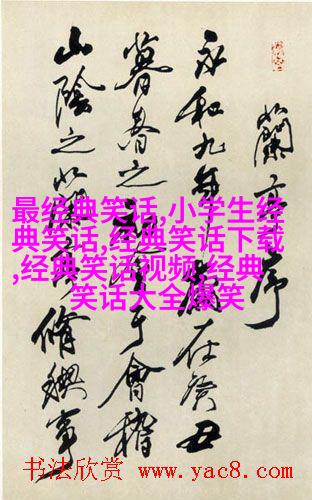 蘭亭序
永和九年歲在癸丑
暮春之初會于會稽
山陰之蘭亭脩禊事
最经典笑话,小学生经
典笑话,经典笑话下载
,经典笑话视频,经典
笑话大全爆笑
书法欣赏 www.yac8.com